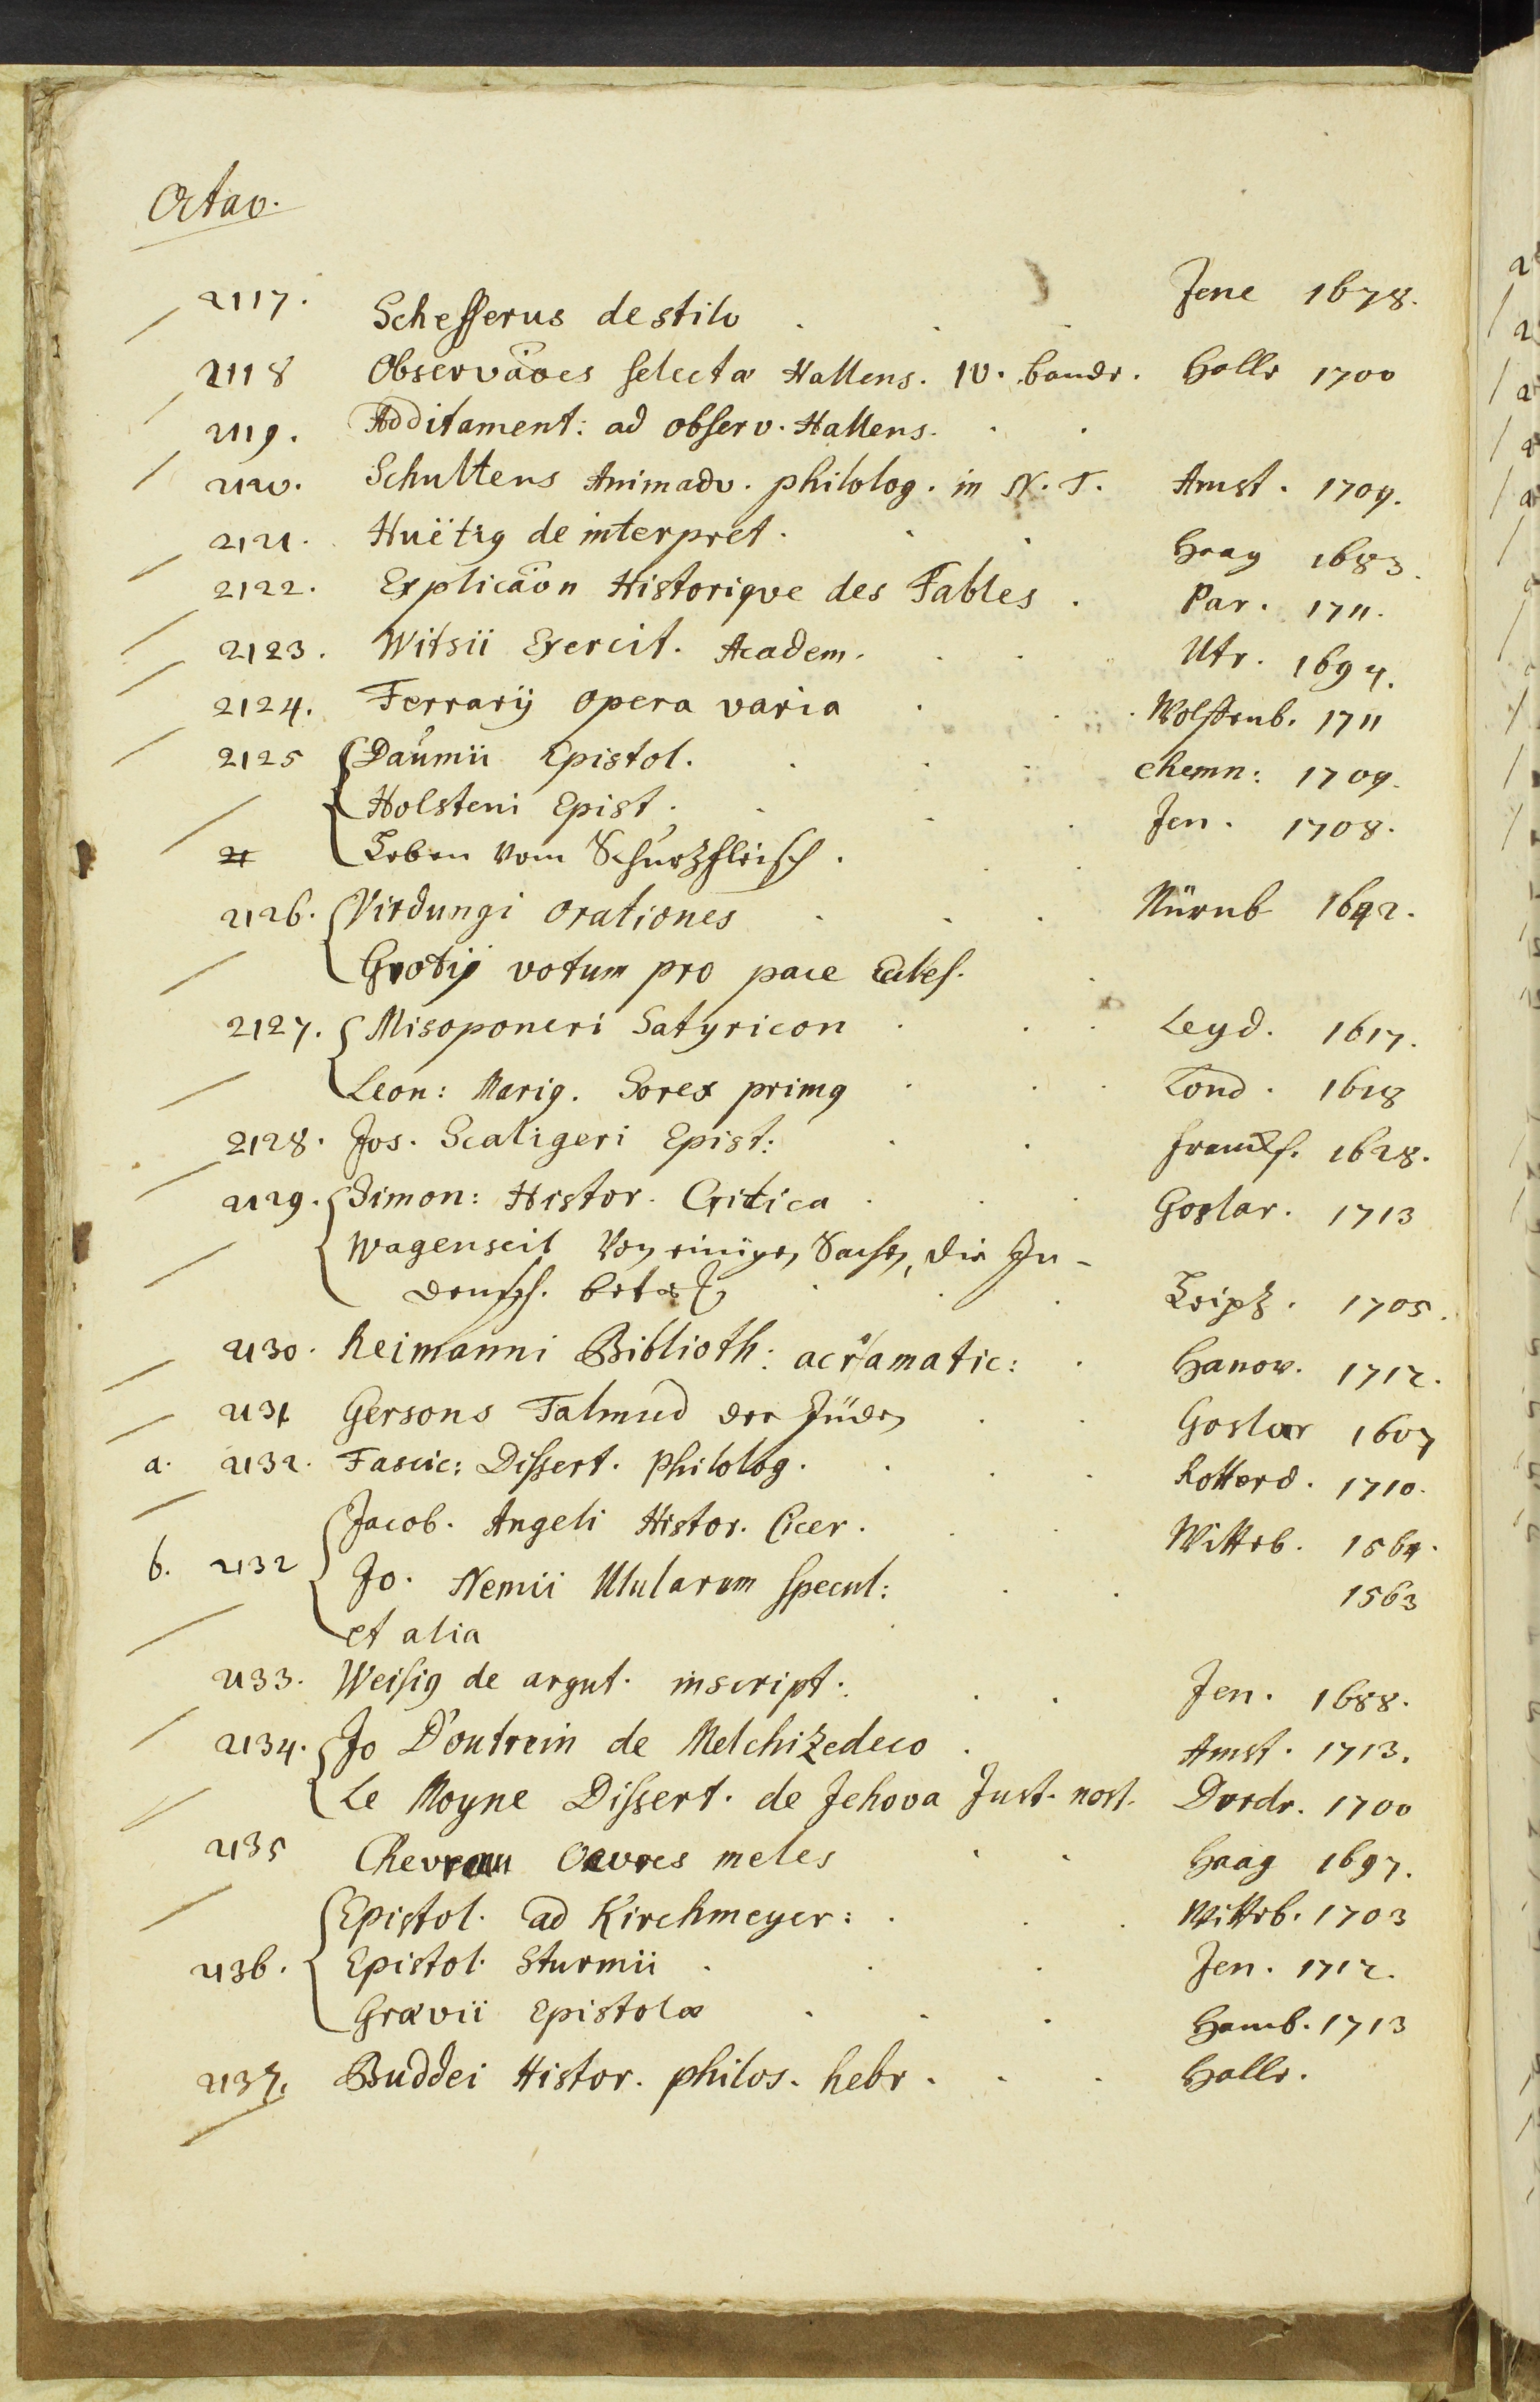 Octav.
2117. Schefferus de stilo . . . Jene 1678.
2118 Observãoes selectæ Hallens. IV. bande. Halle 1700
2119. Additament: ad observ. Hallens. . .
2120. Schultens Animadv. philolog. in N. T. Amst. 1709.
2121. Huëtig de interpret. . . Haag 1683.
2122. Explicãon Historique des Fables . Par. 1711.
2123. Witsii Exercit. Academ. . . Utr. 1694.
2124. Ferrarij opera varia . . . Wolfenb. 1711
2125 Daumii Epistol. . . . Chemn: 1709.
Holsteni Epist. . . . Jen. 1708.
Leben vom Schurzfleisch . . .
2126. Virdungi orationes . . . Nürnb 1642.
Grotij votum pro pace Eccles. .
2127. Misoponeri Satyricon . . . Leyd. 1617.
Leon: Marig. Sorex primg . . . Lond. 1628
2128. Jos. Scaligeri Epist: . . Franckf. 1628.
2129. Simon: Histor. Critica . . . Goslar. 1713
Wagenseil Von einigen Sachen, die Ju-
densch. betreff . . . Leipz. 1705.
2130. Reimanni Biblioth: acroamatic: . Hanov. 1712.
2131 Gersons Talmud der Jüden . . Goslar 1607
a. 2132. Fascic: Dissert. Philolog. . . . Rotterd. 1710.
Jacob. Angeli Histor. Cicer. . . Witteb. 1564.
b. 2132 Jo. Nemii Ulularum specul: . . 1563
et alia
2133. Weisig de argut. inscript. . . Jen. 1688.
2134. Jo D'outrein de Melchizedeco . Amst. 1713.
Le Moyne Dissert. de Jehova Just. nost. Dordr. 1700
2135 Chevreau Oevres meles . . Haag 1697.
Epistol. ad Kirchmeyer: . . . Witteb. 1703
2136. Epistol. Sturmii . . . Jen. 1712.
Grævii Epistolæ . . . Hamb. 1713
2137. Buddei Histor. philos. hebr. . . Halle.